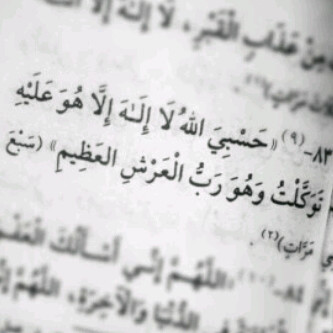 مِنْ عَذَابِ الْقَبْرِ، لَا إِلَهَ إِلَّا
٨٣-(٩) «حَسْبِيَ اللهُ لَا إِلَهَ إِلَّا هُوَ عَلَيْهِ
تَوَكَّلْتُ وَهُوَ رَبُّ الْعَرْشِ الْعَظِيمِ» (سَبْعَ
مَرَّاتٍ)(٢).
٨٤-(١٠) «اللَّهُمَّ إِنِّي أَسْأَلُكَ
فِي الدُّنْيَا وَالْآخِرَةِ، اللَّهُمَّ